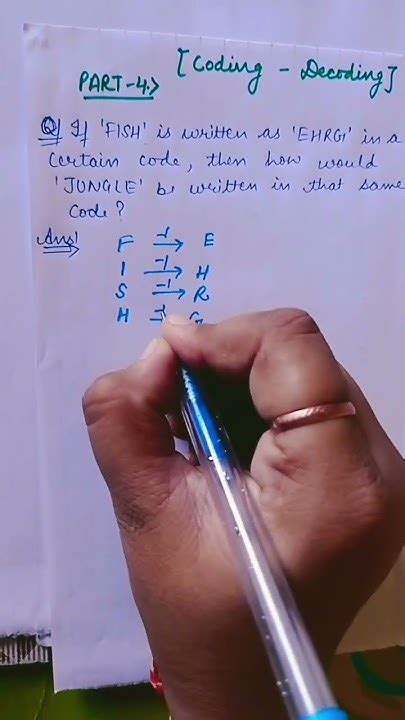 [Coding - Decoding]
PART-4.>
Q) If 'FISH' is written as 'EHRG' in a
certain code, then how would
'JUNGLE' be written in that same
code?
Ans)
F -1→ E
I -1→ H
S -1→ R
H -1→ G